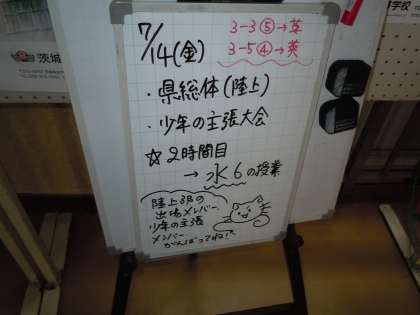 7/14(金)
3-3⑤→英
3-5④→英
・県総体(陸上)
・少年の主張大会
☆2時間目
→水6の授業
陸上部の
出場メンバー、
少年の主張
メンバー
がんばってね!!
茨城
学校